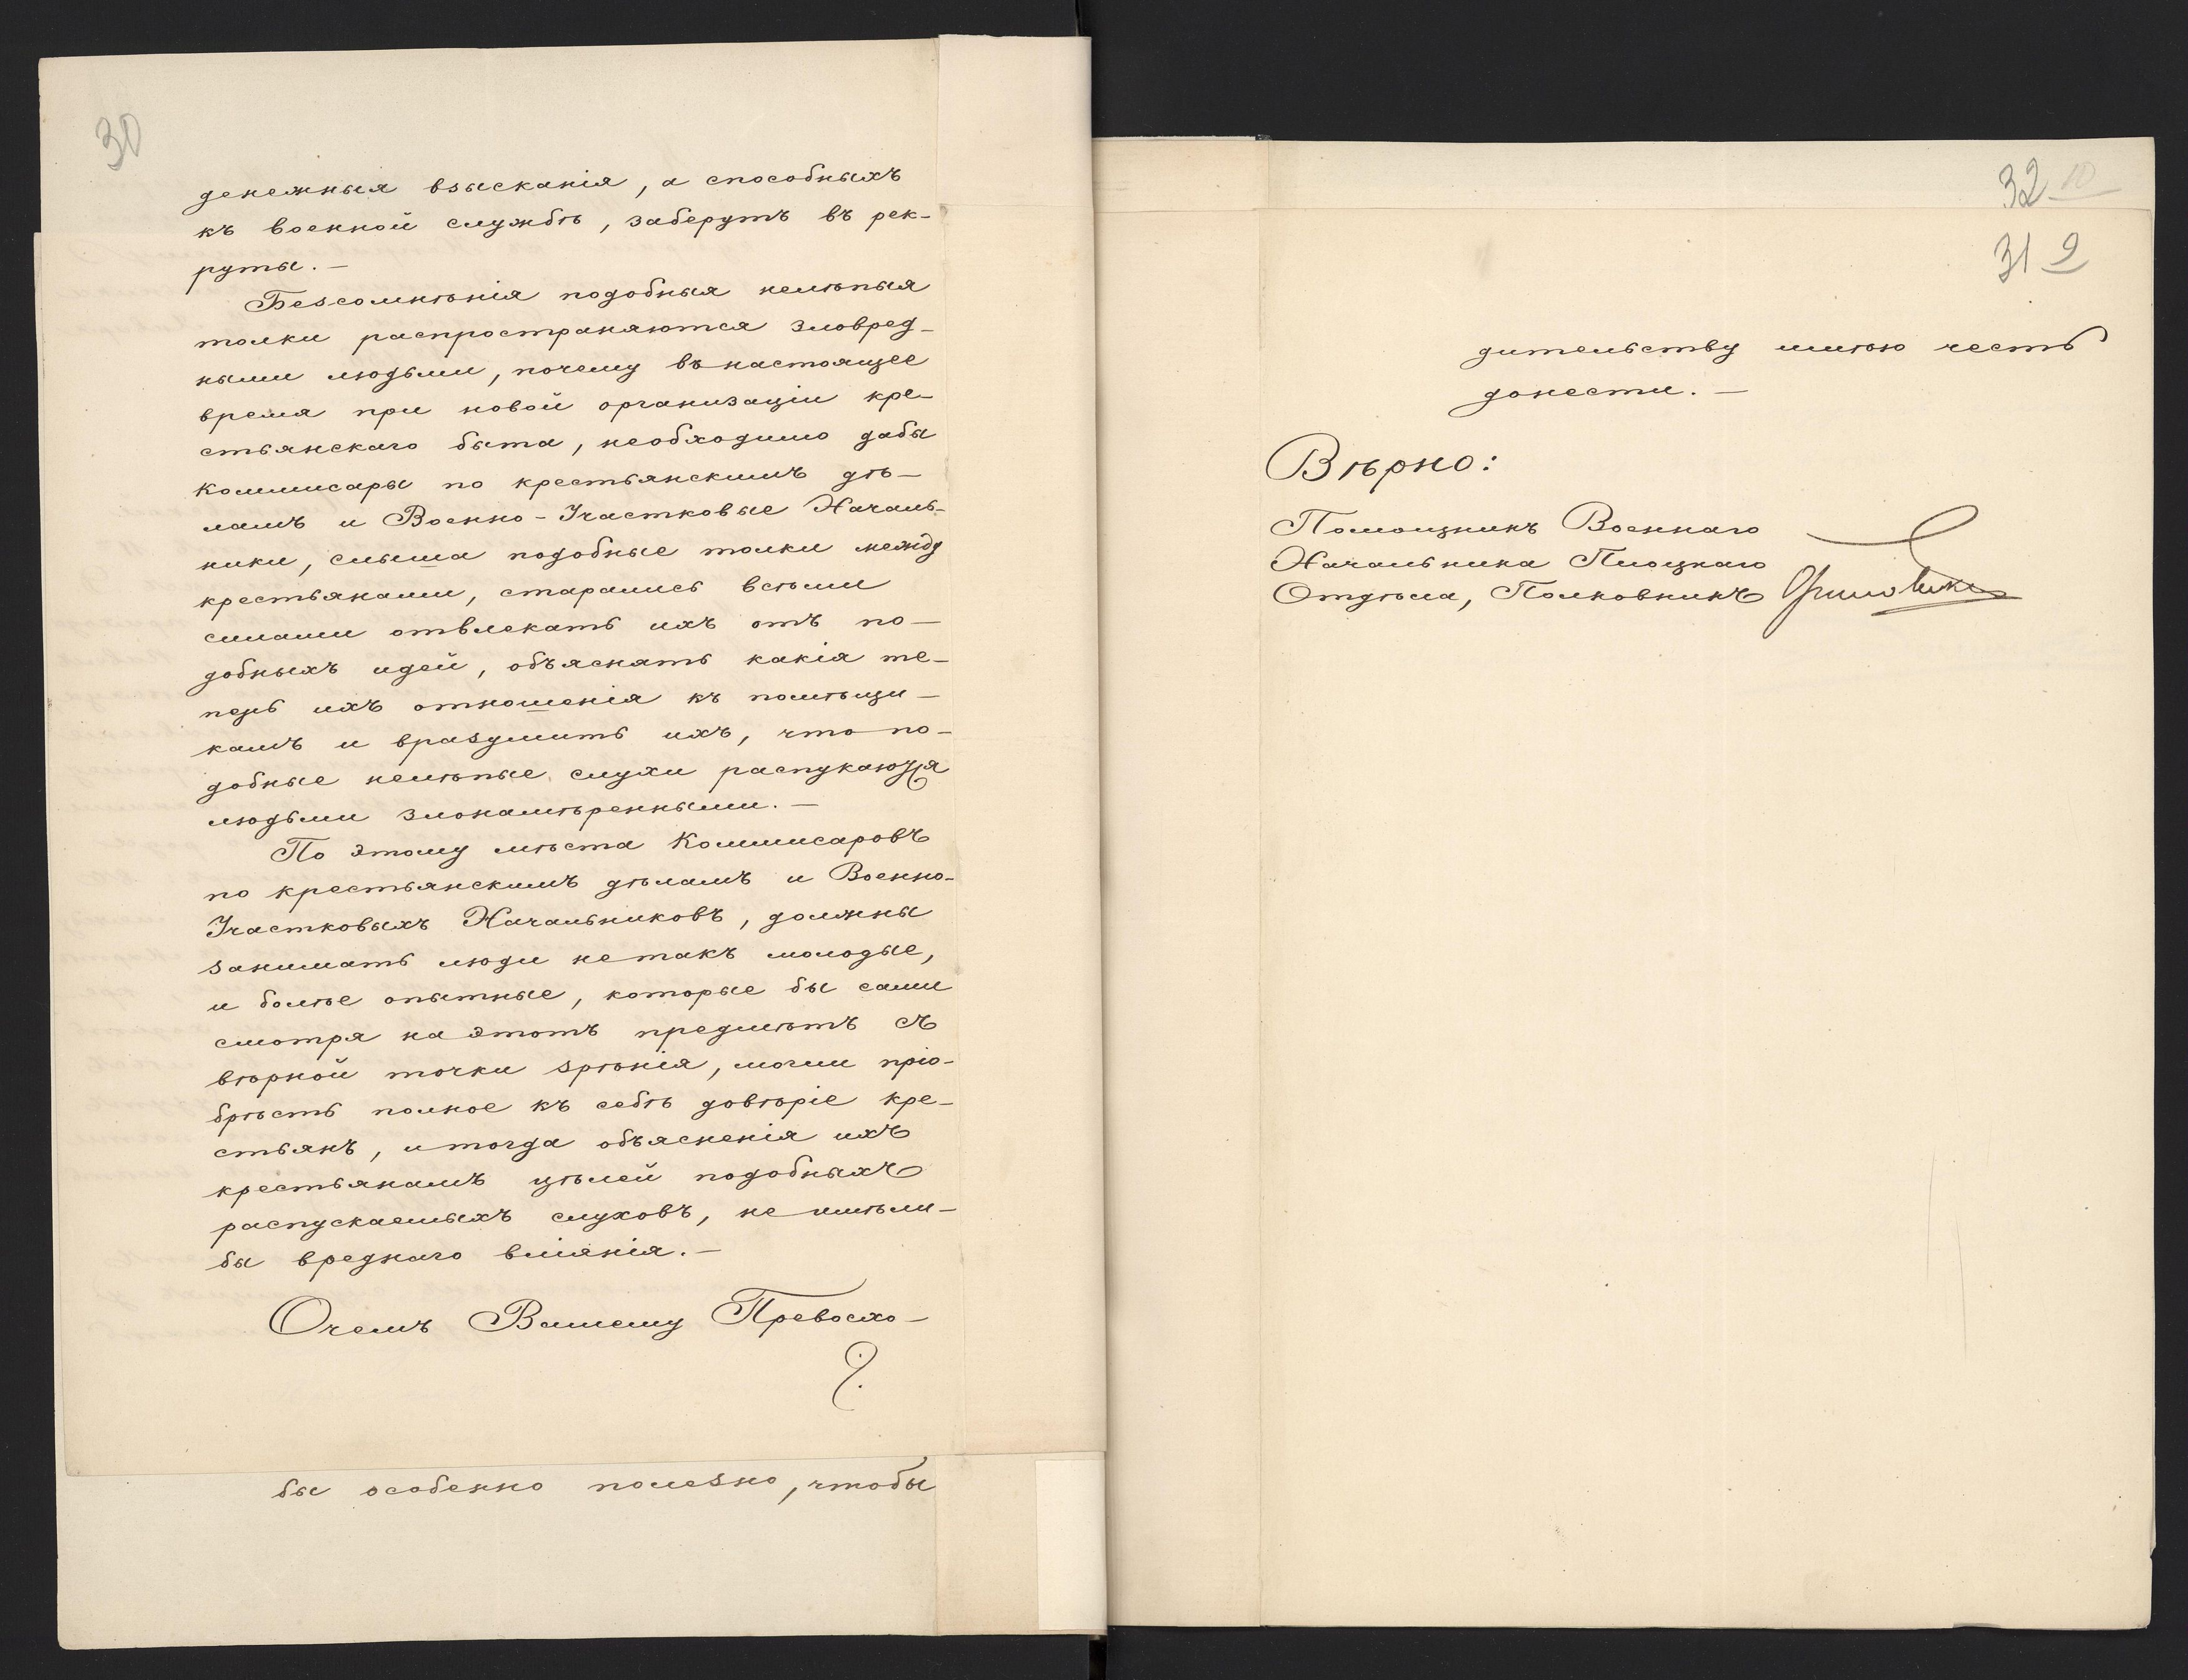 30
денежныя взысканія, а способныхъ
къ военной службѣ, заберутъ въ рек-
руты. —
Безсомнѣнія подобныя нелѣпыя
толки распространяются зловред-
ными людьми, почему въ настоящее
время при новой организаціи кре-
стьянскаго быта, необходимо дабы
Коммисары по крестьянскимъ дѣ-
ламъ и Военно-Участковые Началь-
ники, слыша подобные толки между
крестьянами, старались всѣми
силами отвлекать ихъ отъ по-
добныхъ идей, объяснять какія те-
перь ихъ отношенія къ помѣщи-
камъ и вразумить ихъ, что по-
добные нелѣпые слухи распукаются
людьми злонамѣренными. —
По этому мѣста Коммисаровъ
по крестьянскимъ дѣламъ и Военно-
Участковыхъ Начальниковъ, должны
занимать люди не такъ молодые,
и болѣе опытные, которые бы сами
смотря на этотъ предмѣтъ съ
вѣрной точки зрѣнія, могли пріо-
брѣсть полное къ себѣ довѣріе кре-
стьянъ, и тогда объясненія ихъ
крестьянамъ цѣлей подобныхъ
распускаемыхъ слуховъ, не имѣли-
бы вреднаго вліянія. —
Очемъ Вашему Превосхо-
бы особенно полезно, чтобы
32 10
31 9
дительству имѣю честь
донести. —
Вѣрно:
Помощникъ Военнаго
Начальника Плоцкаго
Отдѣла, Полковникъ